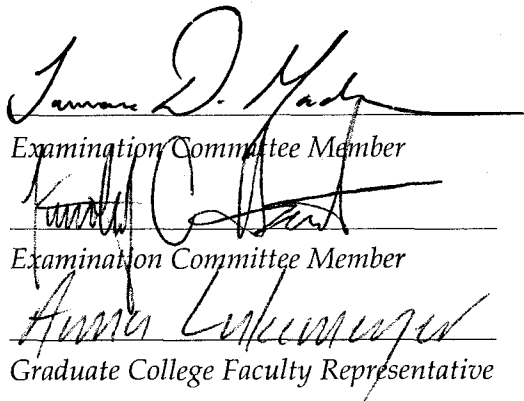 D.
Examination Committee Member
Examination Committee Member
Anna Lukemeyer
Graduate College Faculty Representative